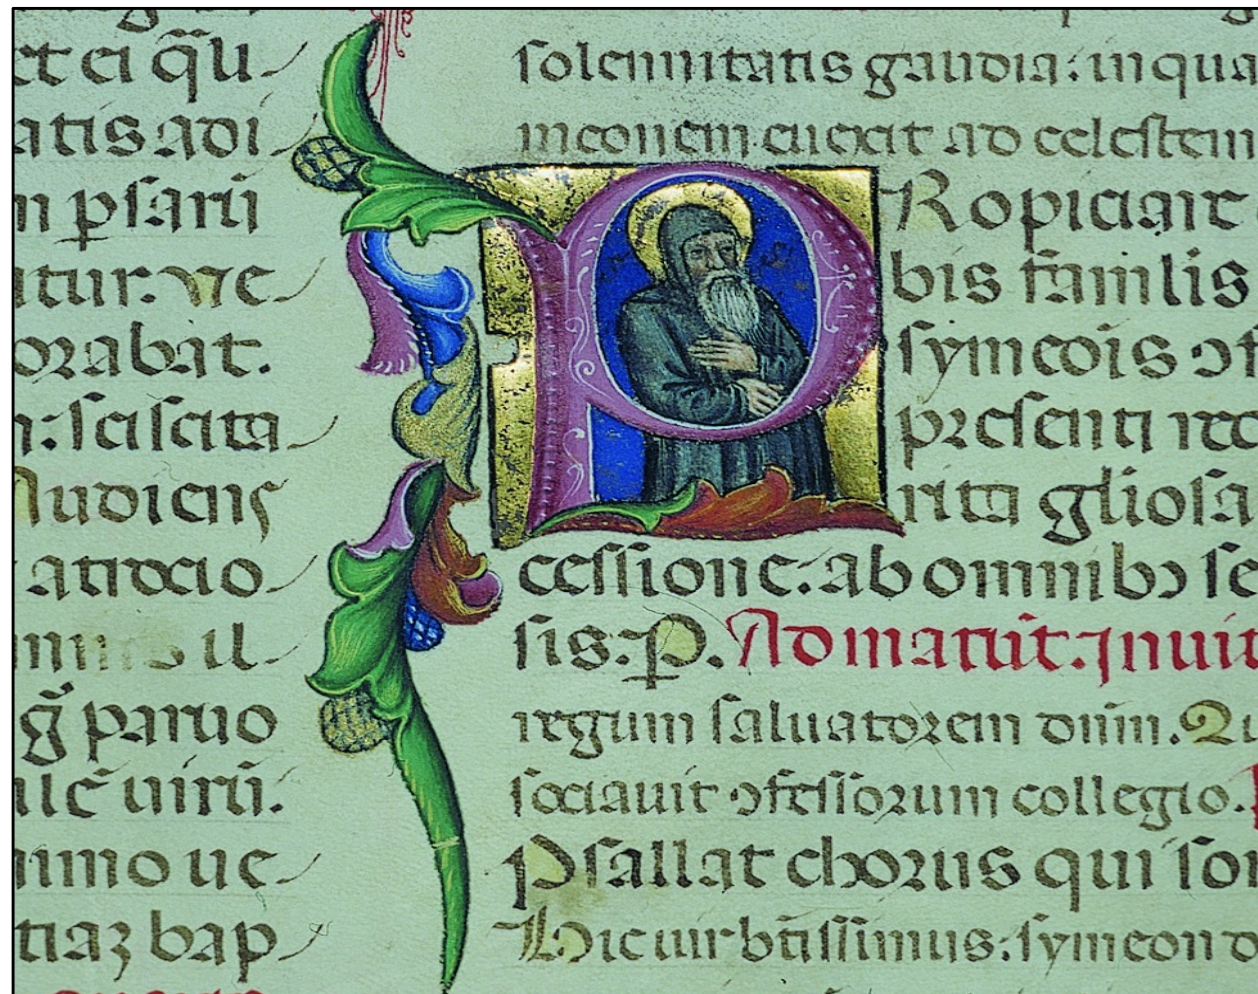 et ci q̃u
atis adi
m ꝑsarii
itur. ne
orabat.
n: sciscita
Audiens
atrocio
il
g̃ paruo
uirti.
nimo ue
tiaʒ bap
solennitatis gaudia: in qua
meonem euexit ad celestem
PRopiciare
bis famĩlis
symeois ꝯf
presenti
rita gl̃iosa
cessione. ab omnibꝫ
sis. P. Ad matut̃. Inuit
regum saluatorem dñm. Qui
sociauit ꝯfessorum collegio.
Psallat chorus qui
Hic uir bt̃issimus: symeon